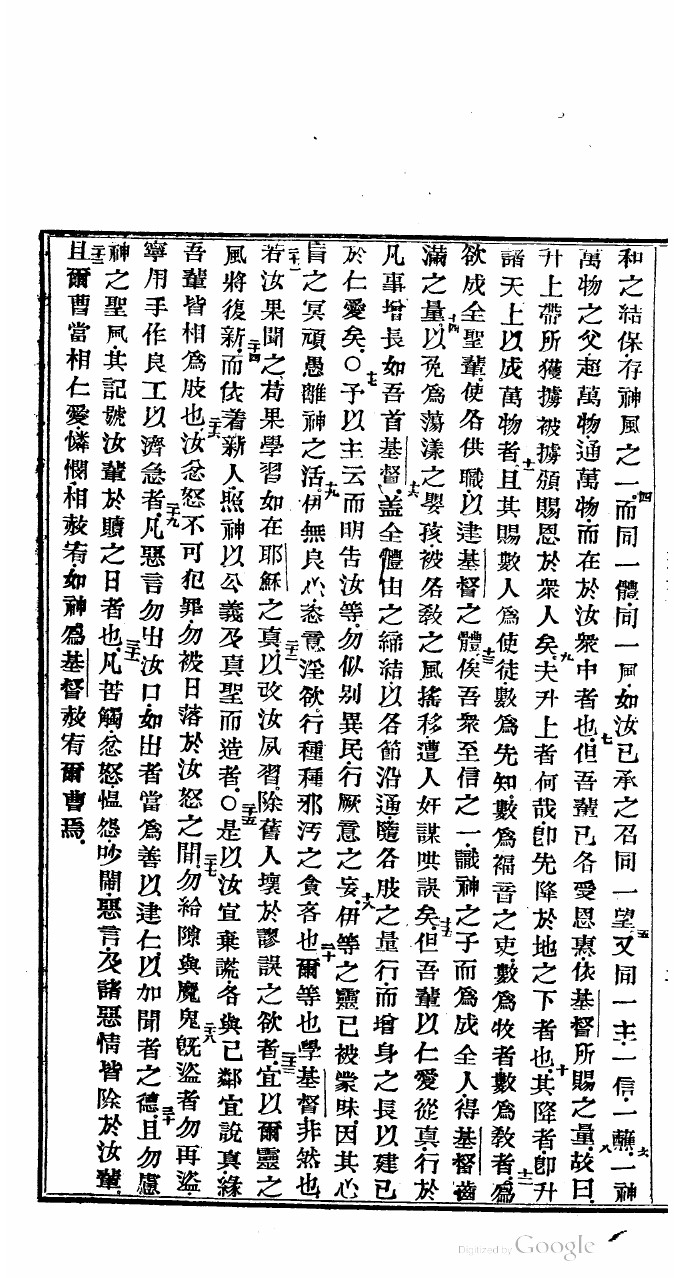 和之結保存神風之一.四而同一體.同一風.如汝已承之召同一望.五又同一主.一信.一蘸.六一神
萬物之父.超萬物通萬物.而在於汝衆中者也.七但吾輩已各受恩惠.依基督所賜之量.八故曰.
升上帶所獲擄被擄.頒賜恩於衆人矣.九夫升上者何哉.卽先降於地之下者也.十其降者.卽升
諸天上以成萬物者.十一且其賜數人爲使徒.數爲先知.數爲福音之吏.數爲牧者.數爲敎者.十二爲
欲成全聖輩.使各供職.以建基督之體.十三俟吾衆至信之一.識神之子而爲成全人.得基督齒
滿之量.十四以免爲蕩漾之嬰孩.被各敎之風搖移.遭人奸謀哄誤矣.十五但吾輩以仁愛從真.行於
凡事增長如吾首基督.十六蓋全體由之締結以各節沿通.隨各肢之量行.而增身之長以建已
於仁愛矣.〇十七予以主云而明告汝等.勿似別異民.行厥意之妄.十八伊等之靈已被蒙昧.因其心
盲之冥頑愚離神之活.十九伊無良心.恣意淫欲.行種種邪汚之貪吝也.二十爾等也學基督.非然也
二十一若汝果聞之.苟果學習如在耶穌之真.二十二以改汝夙習.除舊人壞於謬誤之欲者.二十三宜以爾靈之
風將復新.二十四而依着新人.照神以公義及真聖而造者.〇二十五是以汝宜棄謊.各與已鄰宜說真.緣
吾輩皆相爲肢也.二十六汝忿怒不可犯罪.勿被日落於汝怒之間.二十七勿給隙與魔鬼.二十八旣盜者勿再盜.
寧用手作良工以濟急者.二十九凡惡言勿出汝口.如出者當爲善以建仁以加聞者之德.三十且勿慮
神之聖風.其記號汝輩於贖之日者也.三十一凡苦觸.忿怒.慍怨.吵鬧.惡言.及諸惡情皆除於汝輩.
三十二且爾曹當相仁愛.憐憫.相赦宥.如神爲基督赦宥爾曹焉.
Digitized by Google